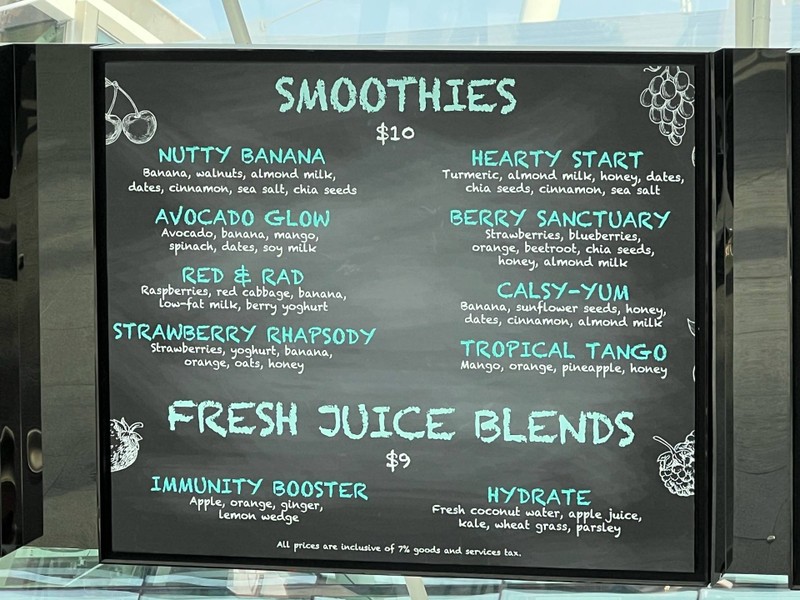 SMOOTHIES
$10
NUTTY BANANA
Banana, walnuts, almond milk,
dates, cinnamon, sea salt, chia seeds
AVOCADO GLOW
Avocado, banana, mango,
spinach, dates, soy milk
RED & RAD
Raspberries, red cabbage, banana,
low-fat milk, berry yoghurt
STRAWBERRY RHAPSODY
Strawberries, yoghurt, banana,
orange, oats, honey
HEARTY START
Turmeric, almond milk, honey, dates,
chia seeds, cinnamon, sea salt
BERRY SANCTUARY
Strawberries, blueberries,
orange, beetroot, chia seeds,
honey, almond milk
CALSY-YUM
Banana, sunflower seeds, honey,
dates, cinnamon, almond milk
TROPICAL TANGO
Mango, orange, pineapple, honey
FRESH JUICE BLENDS
$9
IMMUNITY BOOSTER
Apple, orange, ginger,
lemon wedge
HYDRATE
Fresh coconut water, apple juice,
kale, wheat grass, parsley
All prices are inclusive of 7% goods and services tax.